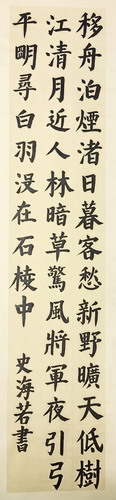 移舟泊煙渚日暮客愁新野曠天低樹
江清月近人林暗草驚風將軍夜引弓
平明尋白羽沒在石棱中
史海若書